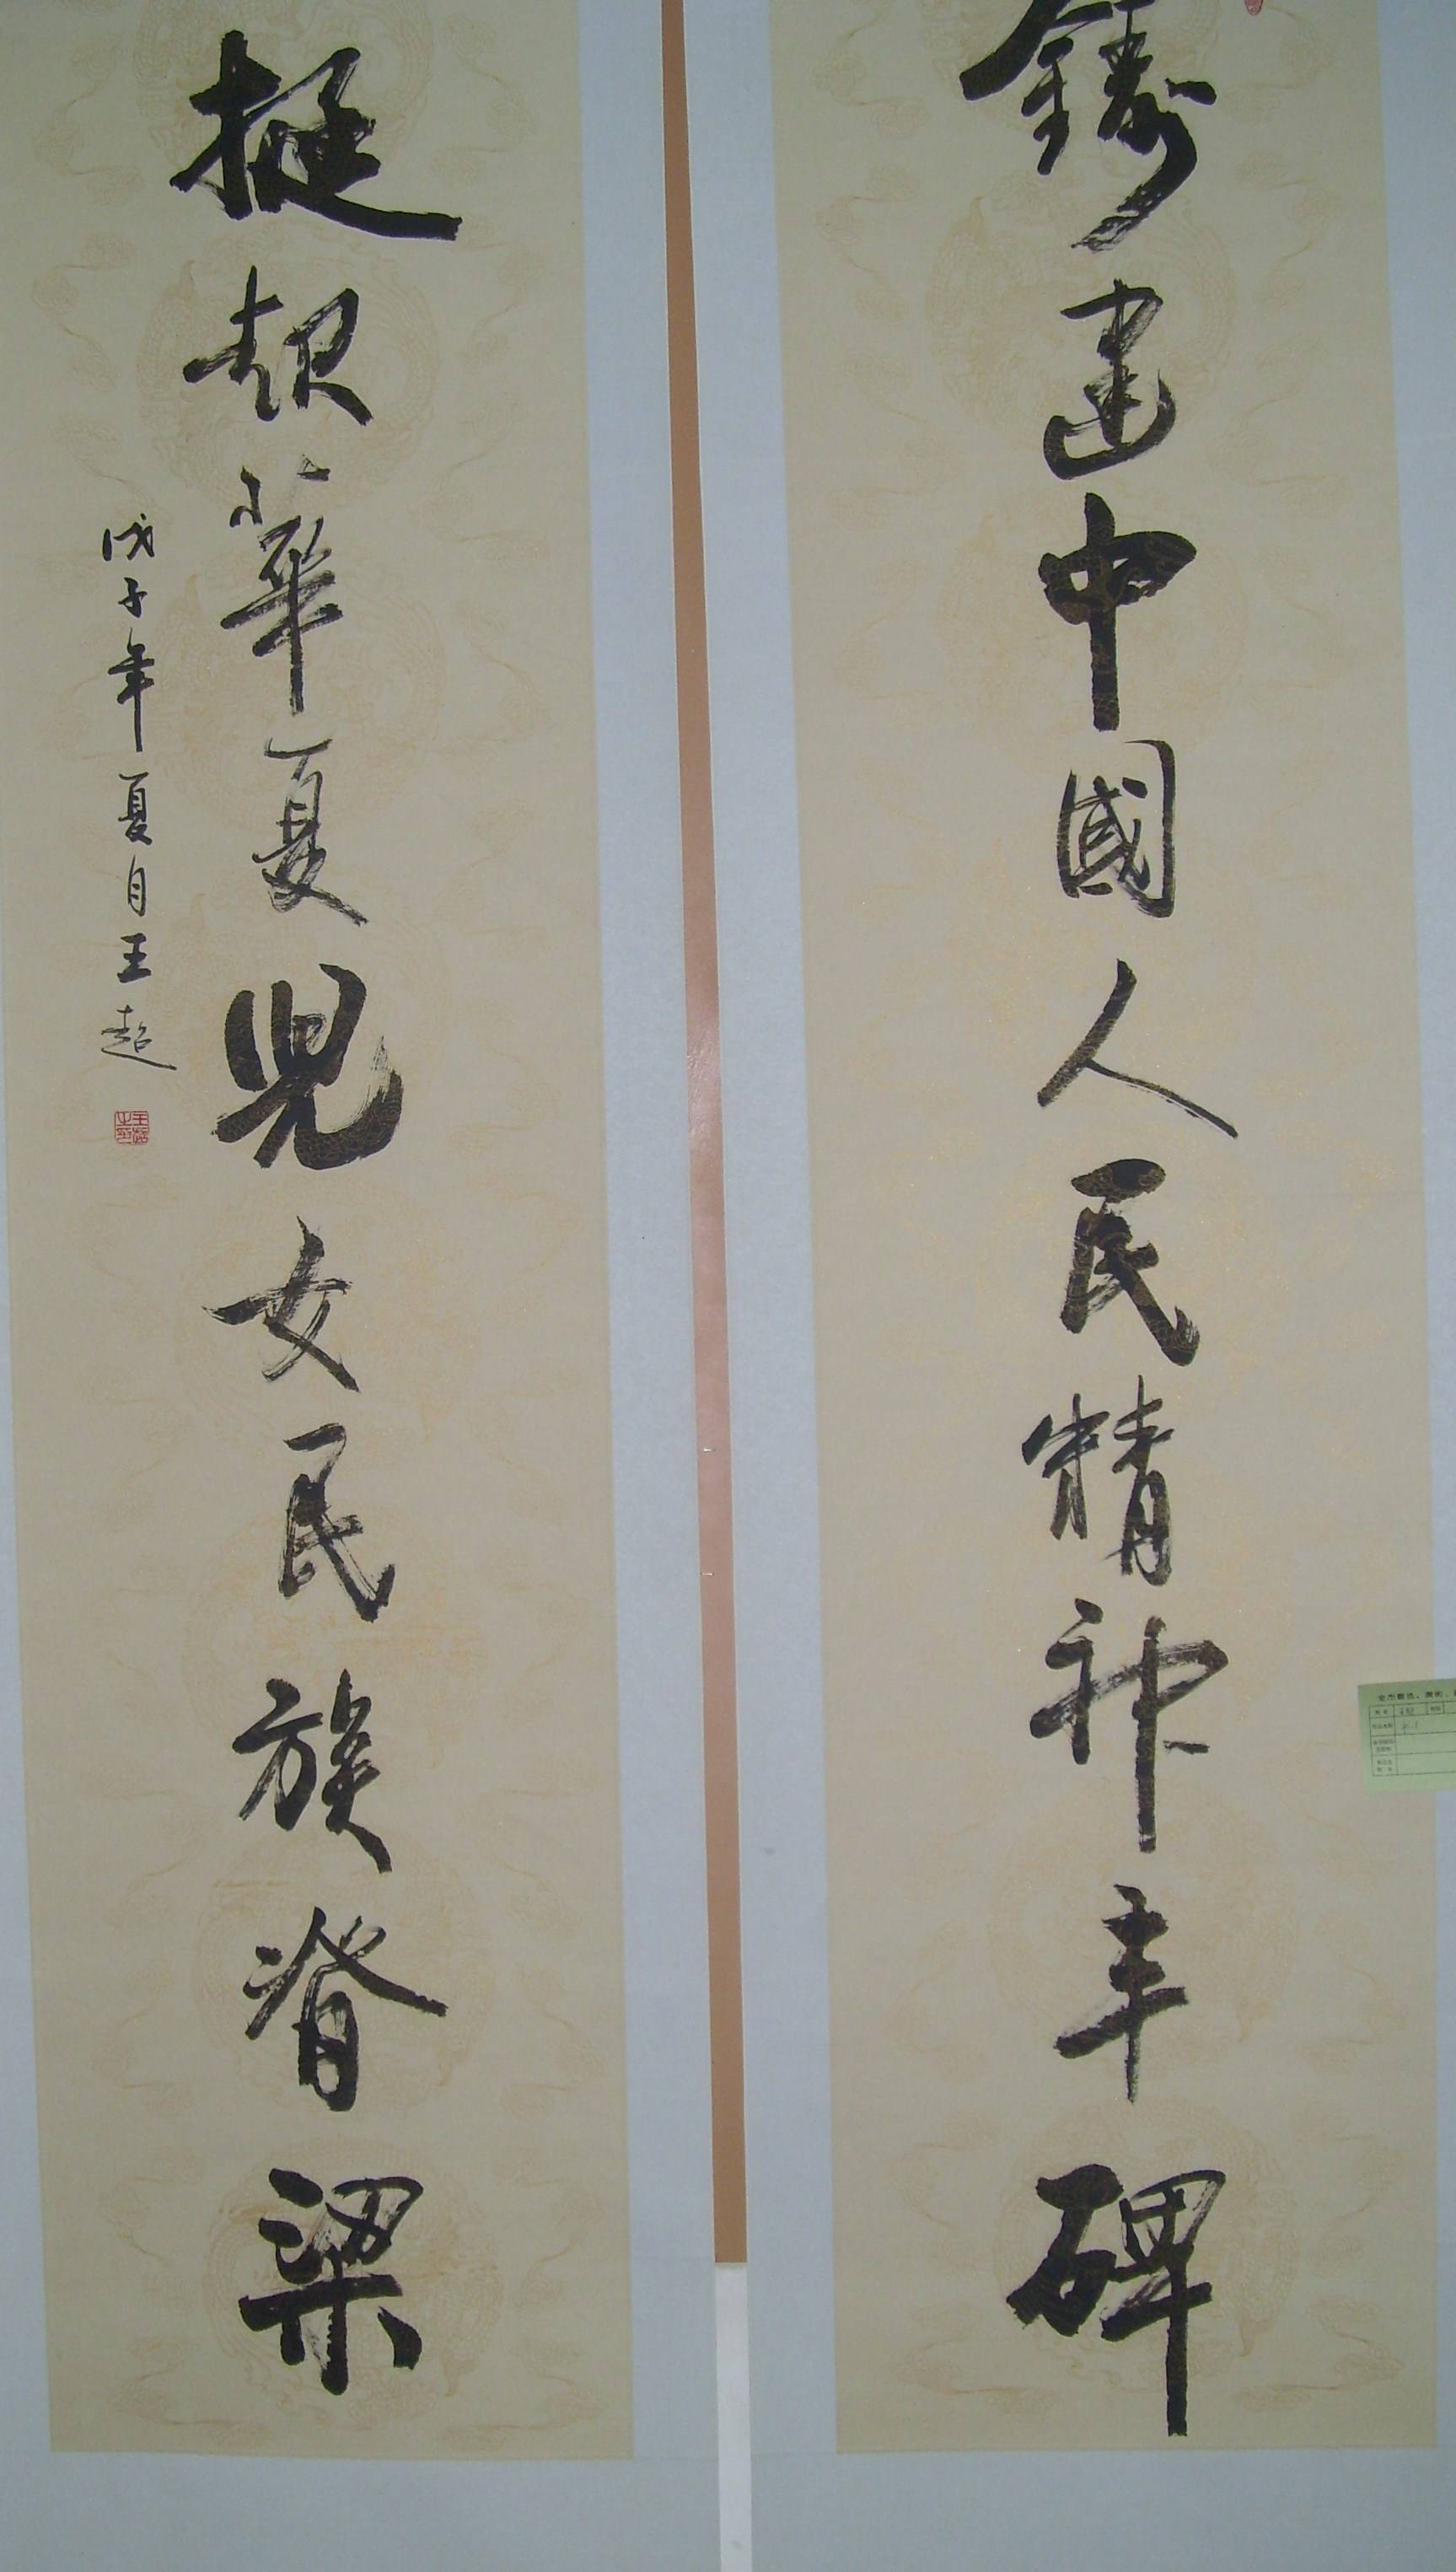 鑄建中國人民精神丰碑
挺起華夏兒女民族脊梁
戊子年夏月王超